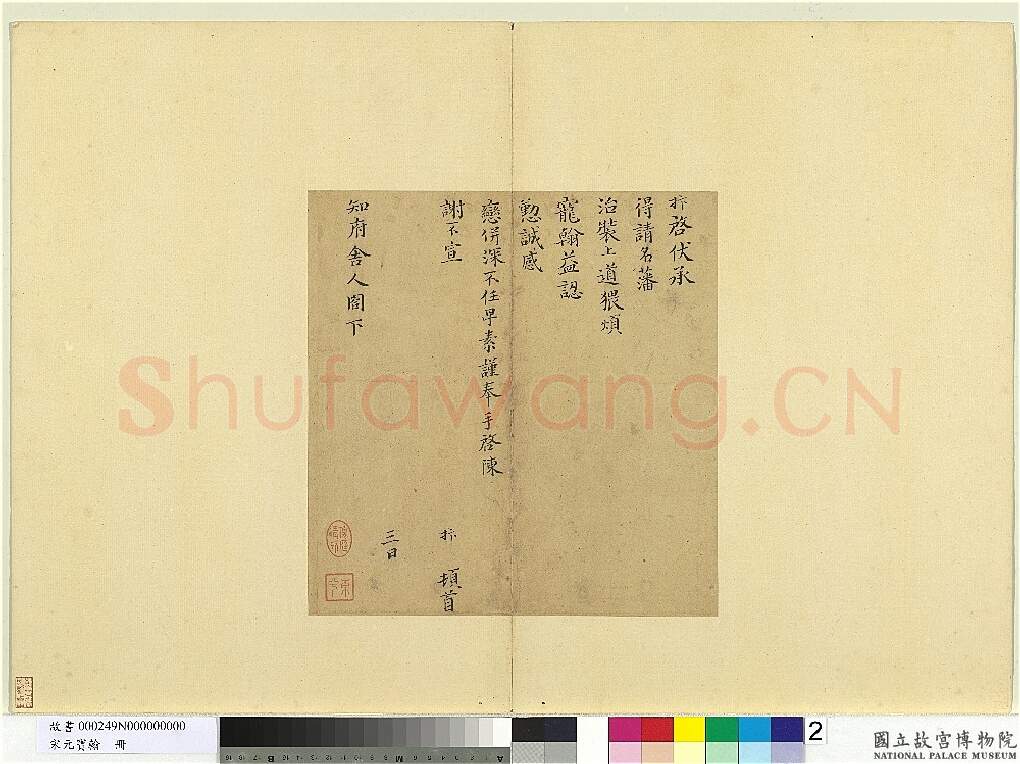 拚啓伏承
得請名藩
治裝上道猥煩
寵翰益認
懃誠感
戀併深不任早素謹奉手啓陳
謝不宣
拚 頓首
三日
知府舍人閣下
Shufawang.CN
故書 000249N000000000
宋元寶翰 冊
2
國立故宮博物院
NATIONAL PALACE MUSEUM